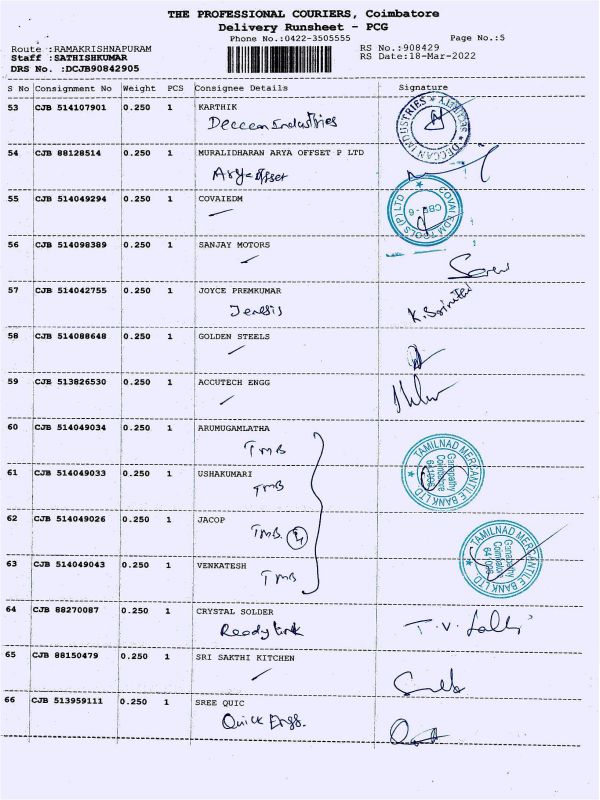 THE PROFESSIONAL COURIERS, Coimbatore
Delivery Runsheet - PCG
Phone No.:0422-3505555 Page No.:5
Route :RAMAKRISHNAPURAM RS No.:908429
Staff :SATHISHKUMAR RS Date:18-Mar-2022
DRS No. :DCJB90842905
S No Consignment No Weight PCS Consignee Details Signature
53 CJB 514107901 0.250 1 KARTHIK
Deccan Industries
DECCAN INDUSTRIES * SECURITY *
54 CJB 88128514 0.250 1 MURALIDHARAN ARYA OFFSET P LTD
Arya offset
55 CJB 514049294 0.250 1 COVAIEDM
COVAI EDM TOOLS (P) LTD
CBE - 6
56 CJB 514098389 0.250 1 SANJAY MOTORS
57 CJB 514042755 0.250 1 JOYCE PREMKUMAR
58 CJB 514088648 0.250 1 GOLDEN STEELS
59 CJB 513826530 0.250 1 ACCUTECH ENGG
60 CJB 514049034 0.250 1 ARUMUGAMLATHA
TMB
TAMILNAD MERCANTILE BANK LTD
Ganapathy
Coimbatore
61 CJB 514049033 0.250 1 USHAKUMARI
TMB
62 CJB 514049026 0.250 1 JACOP
TMB 4
TAMILNAD MERCANTILE BANK LTD
Ganapathy
Coimbatore
63 CJB 514049043 0.250 1 VENKATESH
TMB
64 CJB 88270087 0.250 1 CRYSTAL SOLDER
T.V.
65 CJB 88150479 0.250 1 SRI SAKTHI KITCHEN
66 CJB 513959111 0.250 1 SREE QUIC
Quick Engg.